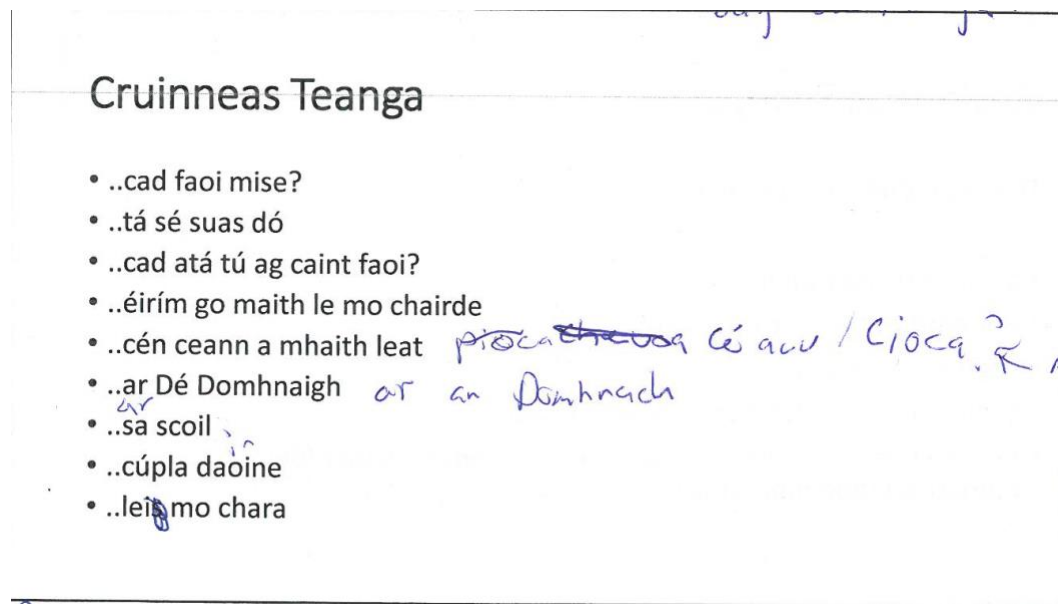 Cruinneas Teanga
• ..cad faoi mise?
• ..tá sé suas dó
• ..cad atá tú ag caint faoi?
• ..éirím go maith le mo chairde
• ..cén ceann a mhaith leat cé acu / Cioca?
• ..ar Dé Domhnaigh ar an Domhnach
ar
• ..sa scoil
• ..cúpla daoine
• ..leis mo chara